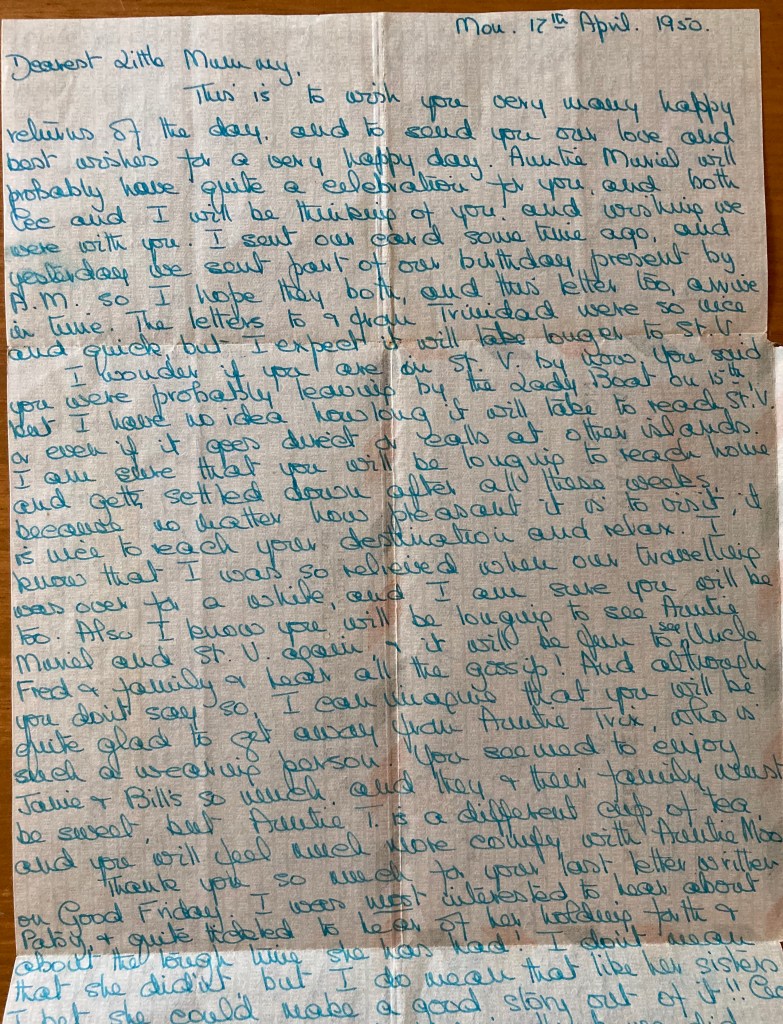 Mon. 17th April. 1950.
Dearest Little Mummy,
This is to wish you very many happy
returns of the day, and to send you our love and
best wishes for a very happy day. Auntie Muriel will
probably have quite a celebration for you, and both
Cec and I will be thinking of you and wishing we
were with you. I sent our card some time ago, and
yesterday we sent part of our birthday present by
A.M. so I hope they both, and this letter too, arrive
in time. The letters to & from Trinidad were so nice
and quick, but I expect it will take longer to St. V.
I wonder if you are in St. V. by now. You said
you were probably leaving by the Lady Boat on 15th,
but I have no idea how long it will take to reach St. V
or even if it goes direct or calls at other islands.
I am sure that you will be longing to reach home
and get settled down after all these weeks,
because no matter how pleasant it is to visit, it
is nice to reach your destination and relax. I
know that I was so relieved when our travelling
was over for a while, and I am sure you will be
too. Also I know you will be longing to see Auntie
Muriel and St. V. again & it will be fun to see Uncle
Fred & family & hear all the gossip! And although
you don't say so, I can imagine that you will be
quite glad to get away from Auntie Trix, who is
such a wearing person. You seemed to enjoy
Janie & Bill's so much, and they & their family must
be sweet, but Auntie T. is a different cup of tea
and you will feel much more comfy with Auntie Moo
Thank you so much for your last letter written
on Good Friday. I was most interested to hear about
Patsy, & quite tickled to hear of her holding forth &
about the tough time she has had! I don't mean
that she didn't but I do mean that like her sisters
I bet she could make a good story out of it!! Cec